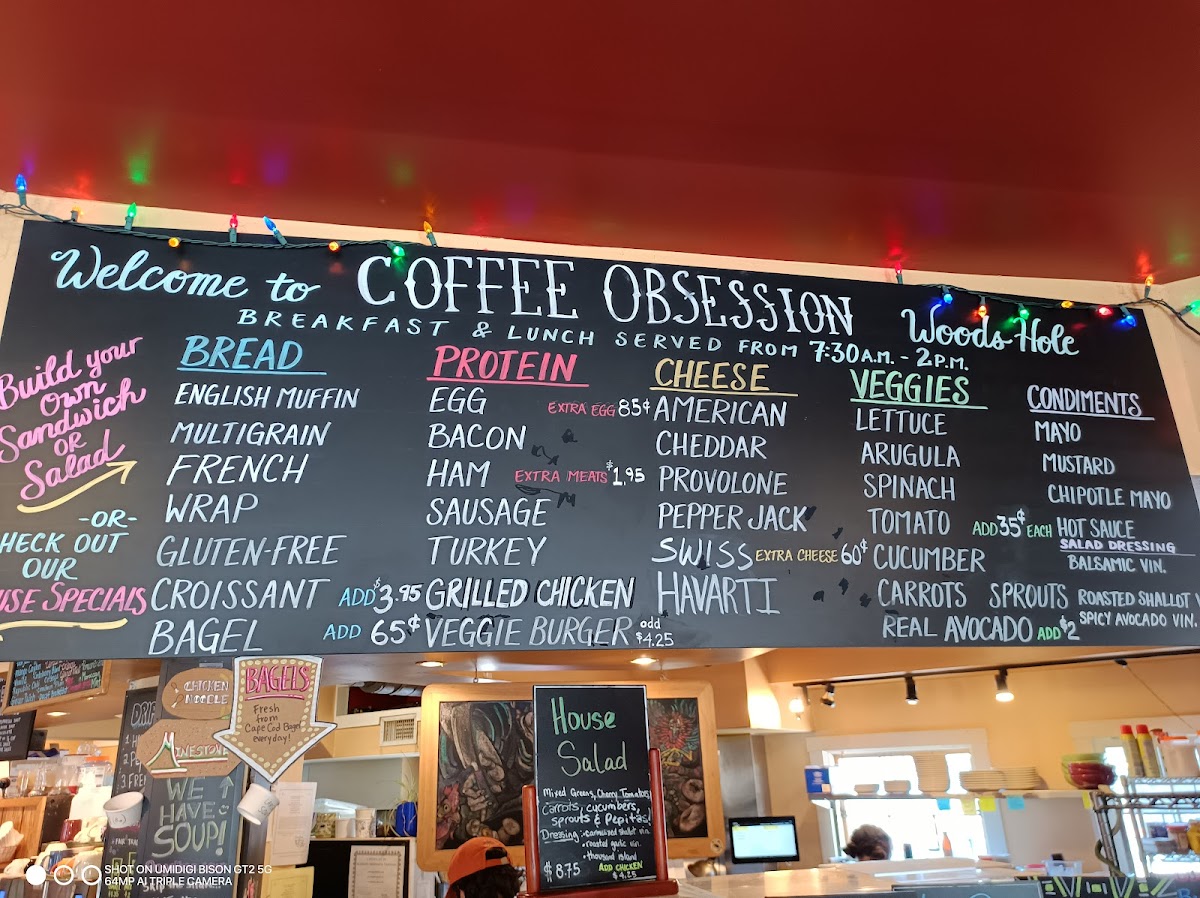 Welcome to COFFEE OBSESSION Woods Hole
BREAKFAST & LUNCH SERVED FROM 7:30 A.M. - 2 P.M.
Build your
own
Sandwich
OR
Salad
-OR-
HECK OUT
OUR
USE SPECIALS
BREAD
ENGLISH MUFFIN
MULTIGRAIN
FRENCH
WRAP
GLUTEN-FREE
CROISSANT ADD $3.95
BAGEL ADD 65¢
PROTEIN
EGG EXTRA EGG 85¢
BACON
HAM EXTRA MEATS $1.95
SAUSAGE
TURKEY
GRILLED CHICKEN
VEGGIE BURGER add $4.25
CHEESE
AMERICAN
CHEDDAR
PROVOLONE
PEPPER JACK
SWISS EXTRA CHEESE 60¢
HAVARTI
VEGGIES
LETTUCE
ARUGULA
SPINACH
TOMATO ADD 35¢ EACH
CUCUMBER
CARROTS SPROUTS
REAL AVOCADO ADD $2
CONDIMENTS
MAYO
MUSTARD
CHIPOTLE MAYO
HOT SAUCE
SALAD DRESSING
BALSAMIC VIN.
ROASTED SHALLOT V
SPICY AVOCADO VIN.
CHICKEN
NOODLE
MINESTONE
WE
HAVE
SOUP!
BAGELS
Fresh
from
Cape Cod Bagel
everyday!
House
Salad
Mixed Greens, Cherry Tomatoes,
Carrots, cucumbers,
sprouts & Pepitas!
Dressing: -carmelized shallot vin.
-roasted garlic vin.
-thousand island
$8.75 ADD CHICKEN
$4.25
SHOT ON UMIDIGI BISON GT2 5G
64MP AI TRIPLE CAMERA